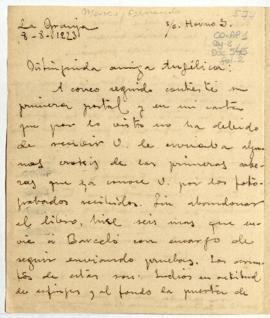 La Granja
8-8-1923
s/c. Horno 5.
Distinguida amiga Angélica:
A correo seguido contesté su
primera postal y en mi carta
que por lo visto no ha debido
de recibir V. le enviaba algu
nas de las primeras
que ya conoce V. por los foto
grabados recibidos. Sin abandonar
el libro, hice seis mas que en
vié a Barceló con encargo de
seguir enviando pruebas. Los asun
tos de estas son: Indios en actitud
de esfinges y al fondo la puerta de